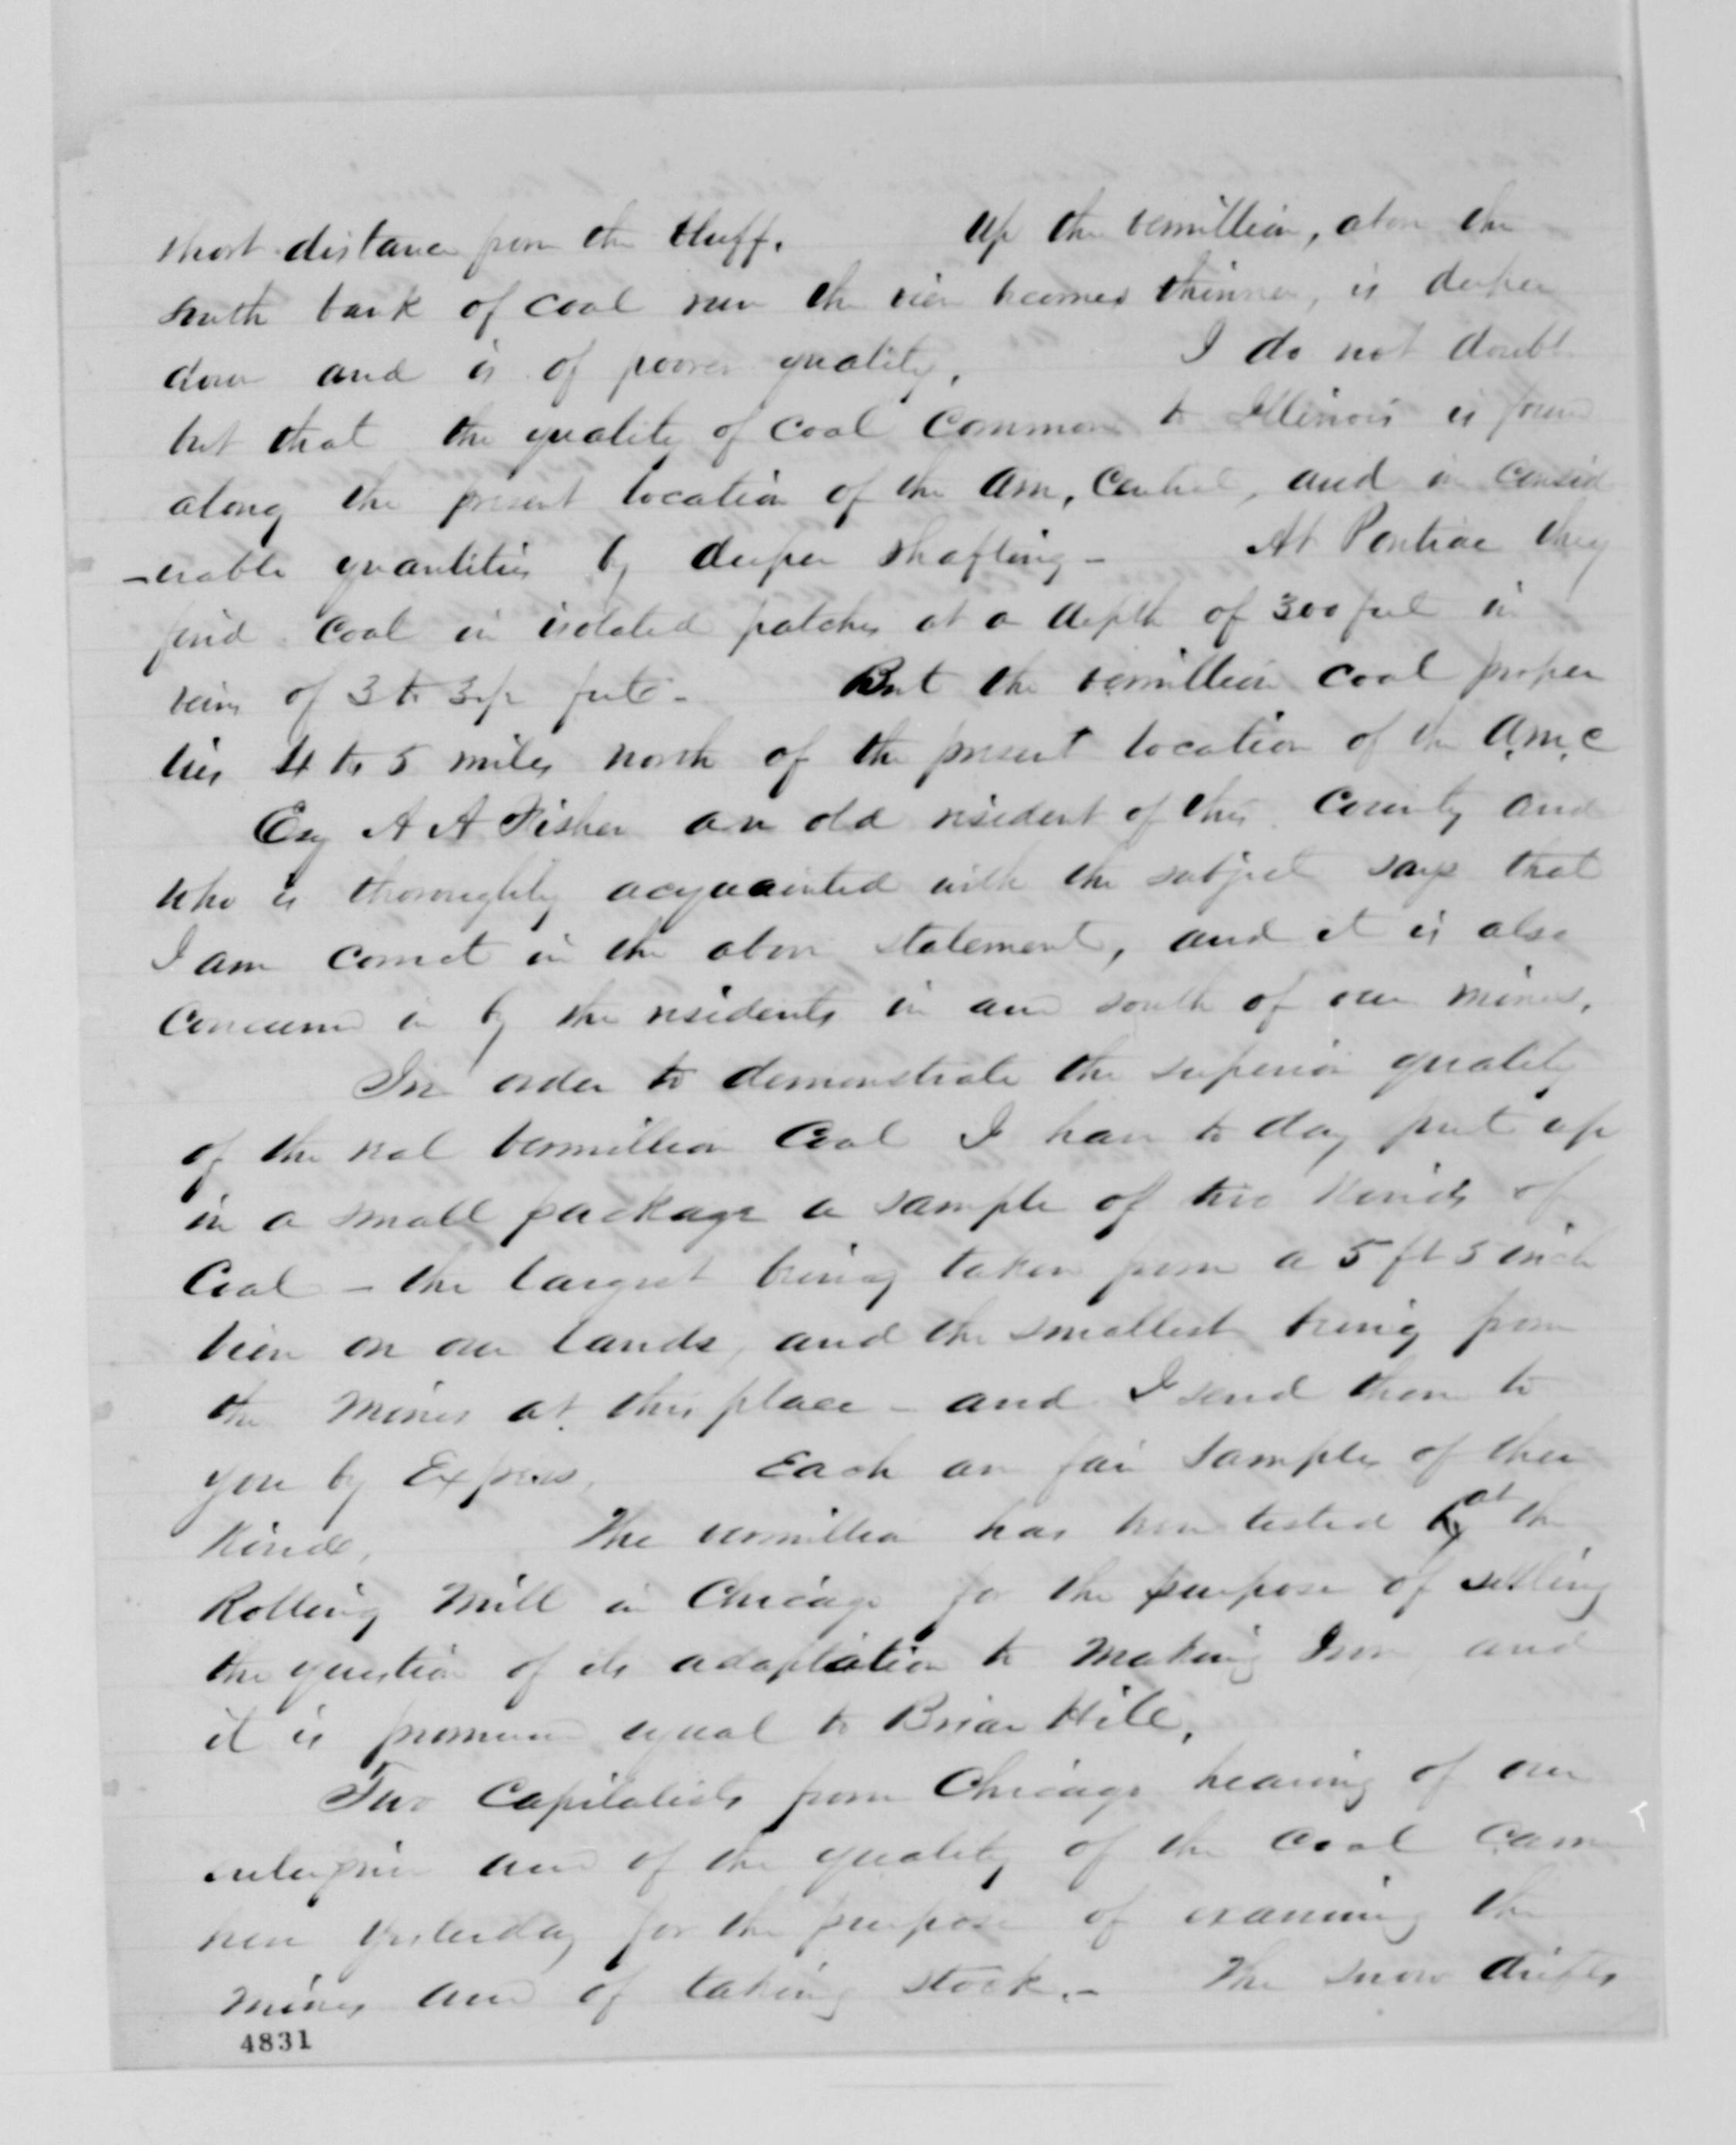 short distance from the bluff. Up the vermillion, above the
south bank of coal run the vein becomes thinner, is deeper
down and is of poorer quality. I do not doubt
but that the quality of coal common to Illinois is found
along the present location of the Am. Central, and in consid
-erable quantities by deeper shafting - At Pontiac they
find coal in isolated patches at a depth of 300 feet in
veins of 3 to feet - But the vermillion coal proper
lies 4 to 5 miles north of the present location of the A.m.c
Esq A A Fisher an old resident of this County and
who is thoroughly acquainted with the subject says that
I am correct in the above statement, and it is also
concurred in by the residents in and south of our mines.
In order to demonstrate the superior quality
of the real vermillion Coal I have to day put up
in a small package a sample of two kinds of
Coal - the largest being taken from a 5 ft 5 inch
vein on our lands, and the smallest being from
the mines at this place - and I send them to
you by Express. Each are fair samples of their
kinds. The vermillion has been tested at the
Rolling Mill in Chicago for the purpose of settling
the question of its adaptation to making Iron, and
it is pronounced equal to Briar Hill.
Two Capitalists from Chicago hearing of our
enterprise and of the quality of the coal came
here yesterday for the purpose of examining the
mines and of taking stock. - The snow drifts
4831